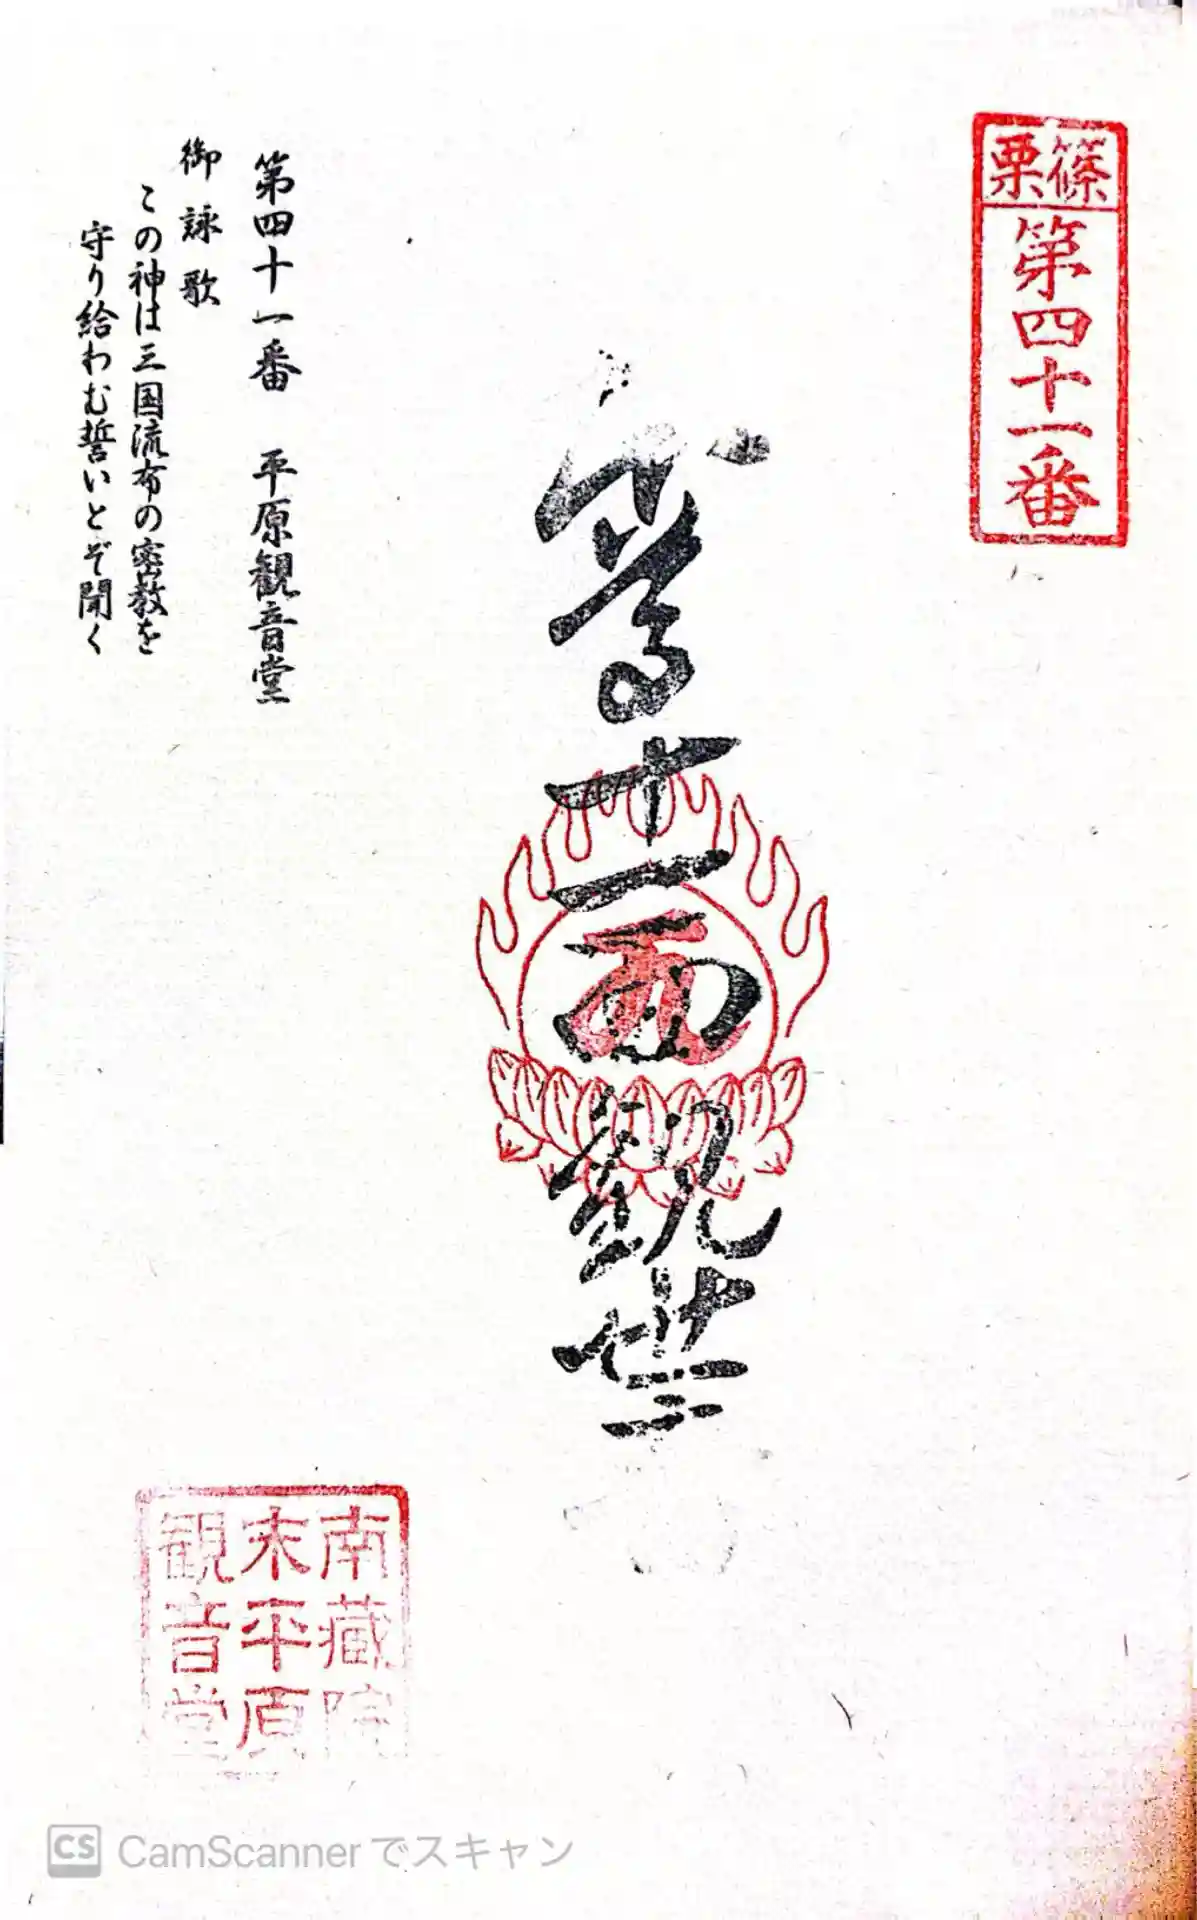 篠栗
第四十一番
尊十一面観世
第四十一番 平原観音堂
御詠歌
この神は三国流布の密教を
守り給わむ誓いとぞ聞く
南蔵院
末平原
観音堂
CS CamScannerでスキャン